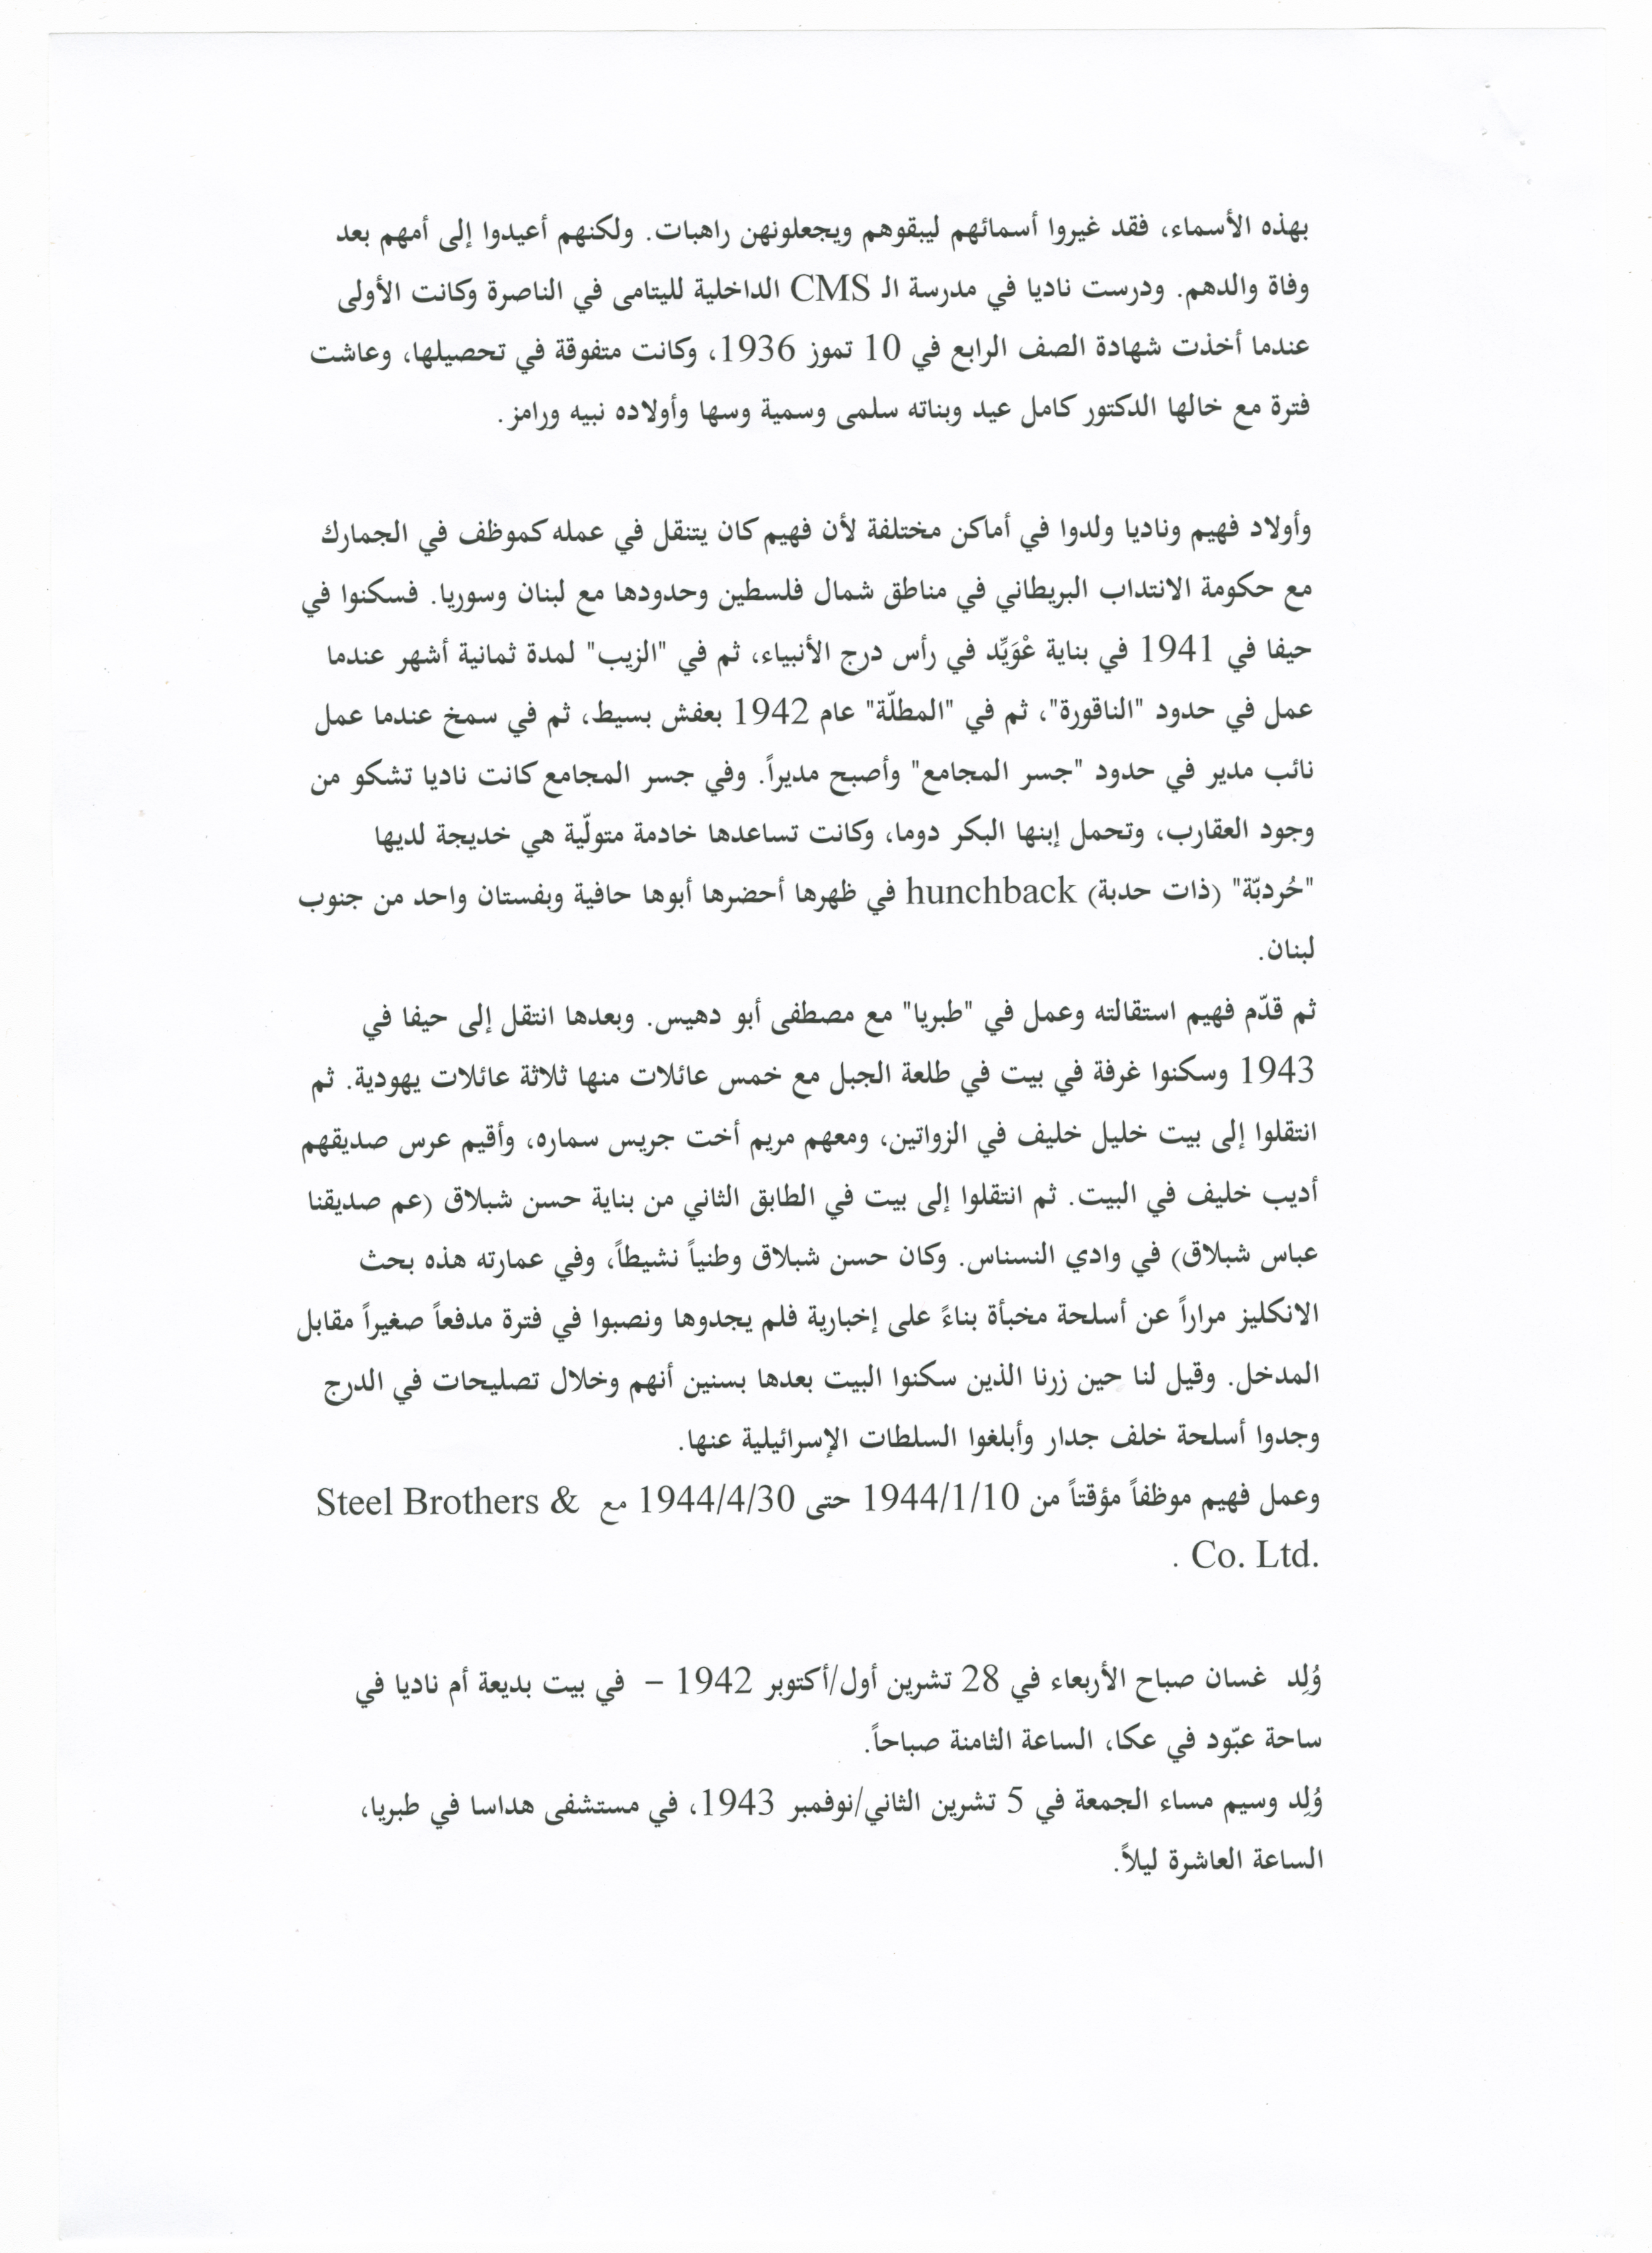 بهذه الأسماء، فقد غيروا أسمائهم ليبقوهم ويجعلونهن راهبات. ولكنهم أعيدوا إلى أمهم بعد
وفاة والدهم. ودرست ناديا في مدرسة الـ CMS الداخلية لليتامى في الناصرة وكانت الأولى
عندما أخذت شهادة الصف الرابع في 10 تموز 1936، وكانت متفوقة في تحصيلها، وعاشت
فترة مع خالها الدكتور كامل عيد وبناته سلمى وسمية وسها وأولاده نبيه ورامز.
وأولاد فهيم وناديا ولدوا في أماكن مختلفة لأن فهيم كان يتنقل في عمله كموظف في الجمارك
مع حكومة الانتداب البريطاني في مناطق شمال فلسطين وحدودها مع لبنان وسوريا. فسكنوا في
حيفا في 1941 في بناية عْوَيِّد في رأس درج الأنبياء، ثم في "الزيب" لمدة ثمانية أشهر عندما
عمل في حدود "الناقورة"، ثم في "المطلّة" عام 1942 بعفش بسيط، ثم في سمخ عندما عمل
نائب مدير في حدود "جسر المجامع" وأصبح مديراً. وفي جسر المجامع كانت ناديا تشكو من
وجود العقارب، وتحمل إبنها البكر دوما، وكانت تساعدها خادمة متولّية هي خديجة لديها
"حُردبّة" (ذات حدبة) hunchback في ظهرها أحضرها أبوها حافية وبفستان واحد من جنوب
لبنان.
ثم قدّم فهيم استقالته وعمل في "طبريا" مع مصطفى أبو دهيس. وبعدها انتقل إلى حيفا في
1943 وسكنوا غرفة في بيت في طلعة الجبل مع خمس عائلات منها ثلاثة عائلات يهودية. ثم
انتقلوا إلى بيت خليل خليف في الزواتين، ومعهم مريم أخت جريس سماره، وأقيم عرس صديقهم
أديب خليف في البيت. ثم انتقلوا إلى بيت في الطابق الثاني من بناية حسن شبلاق (عم صديقنا
عباس شبلاق) في وادي النسناس. وكان حسن شبلاق وطنياً نشيطاً، وفي عمارته هذه بحث
الانكليز مراراً عن أسلحة مخبأة بناءً على إخبارية فلم يجدوها ونصبوا في فترة مدفعاً صغيراً مقابل
المدخل. وقيل لنا حين زرنا الذين سكنوا البيت بعدها بسنين أنهم وخلال تصليحات في الدرج
وجدوا أسلحة خلف جدار وأبلغوا السلطات الإسرائيلية عنها.
وعمل فهيم موظفاً مؤقتاً من 1944/1/10 حتى 1944/4/30 مع Steel Brothers &
Co. Ltd. .
وُلِد غسان صباح الأربعاء في 28 تشرين أول/أكتوبر 1942 – في بيت بديعة أم ناديا في
ساحة عبّود في عكا، الساعة الثامنة صباحاً.
وُلِد وسيم مساء الجمعة في 5 تشرين الثاني/نوفمبر 1943، في مستشفى هداسا في طبريا،
الساعة العاشرة ليلاً.